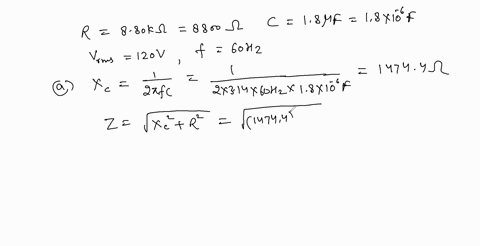 R = 8.80kΩ = 8800 Ω C = 1.8μF = 1.8×10⁻⁶ F
Vrms = 120V , f = 60Hz
(a) Xc = 1/2πfC = 1/2×3.14×60Hz×1.8×10⁻⁶F = 1474.4Ω
Z = √Xc²+R² = √(1474.4